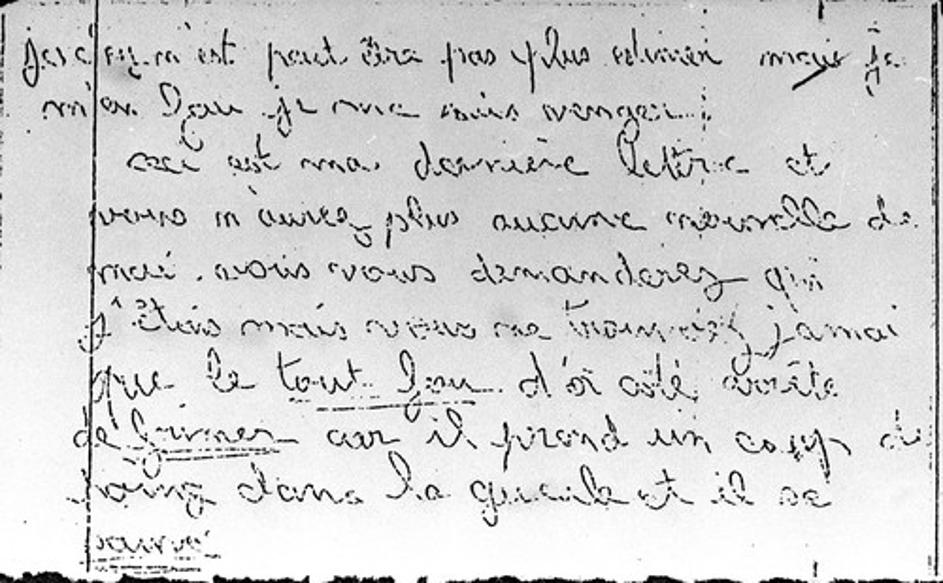 n'est peut être pas plus mais je
m'en fou je me suis venger.
ceci est ma dernière lettre et
vous n'aurez plus aucune nouvelle de
moi. vous vous demanderez qui
j'étais mais vous ne jamai
que le tout fou côté arrête
de frimer car il prend un coup de
poing dans la gueule et il se
sauve